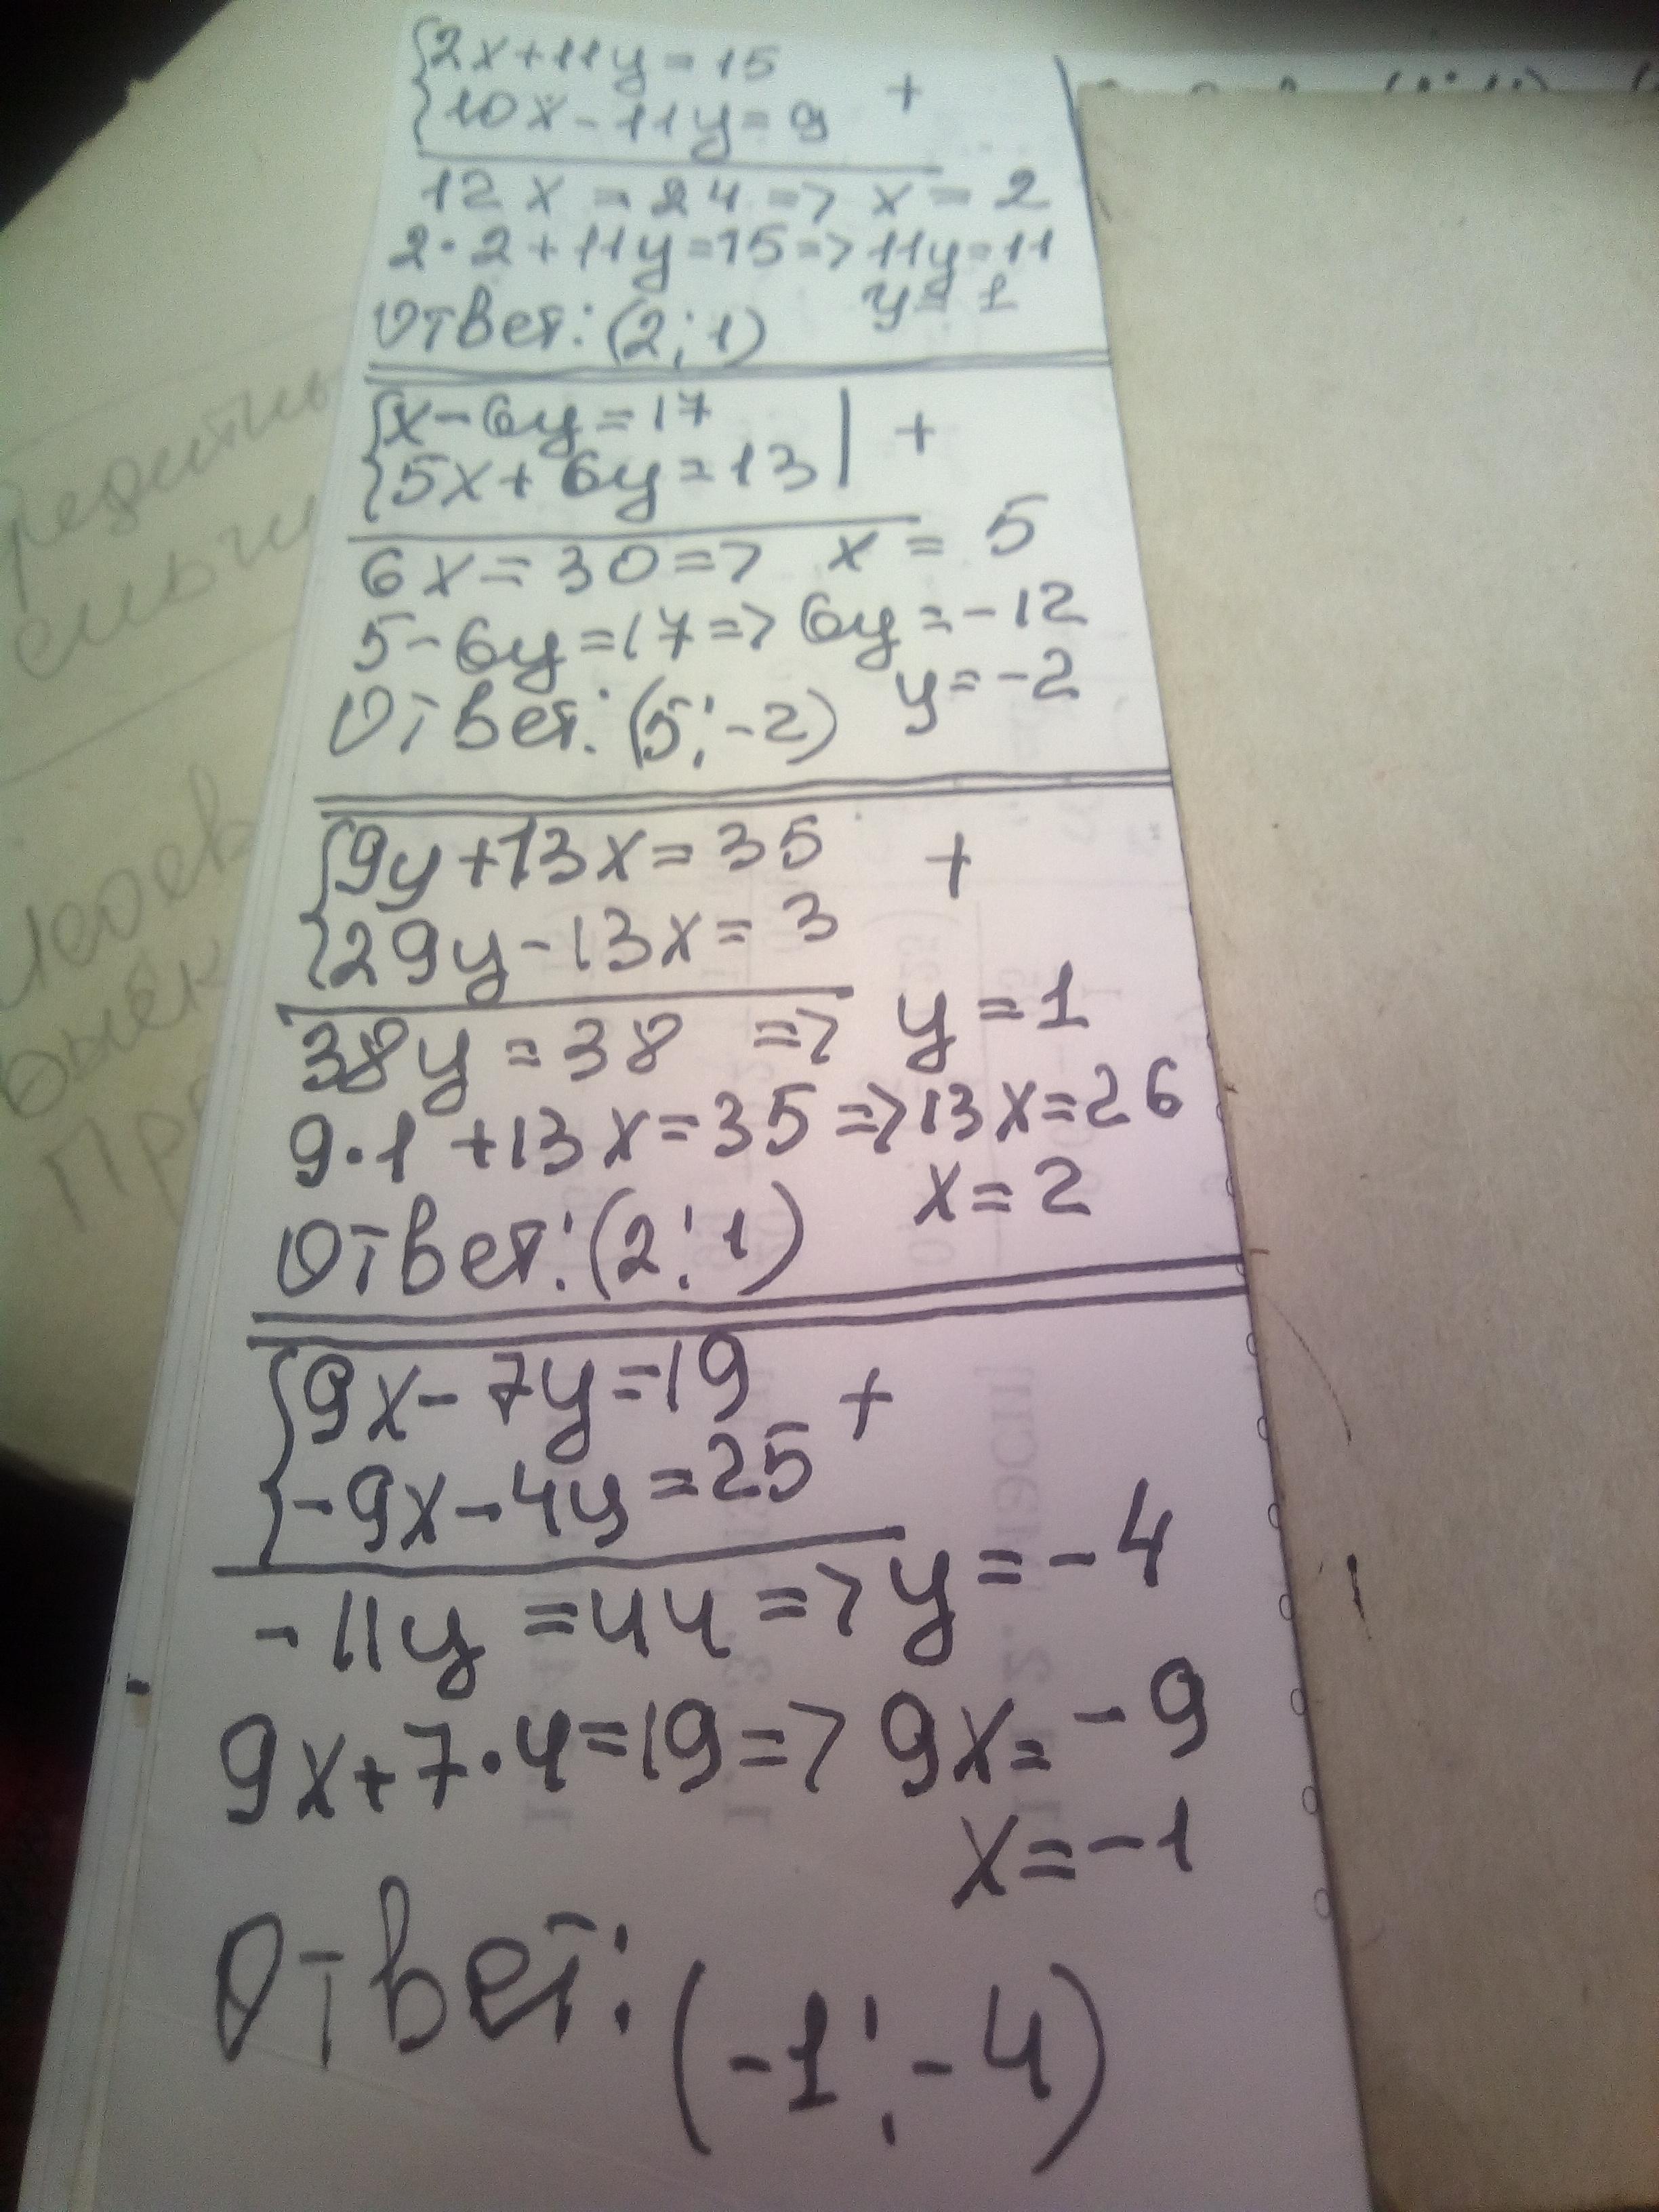 {2x+11y=15
{10x-11y=9 +
12x=24=> x=2
2·2+11y=15=>11y=11
y=1
Ответ: (2;1)
{x-6y=17
{5x+6y=13 | +
6x=30=> x=5
5-6y=17=>6y=-12
y=-2
Ответ: (5;-2)
{9y+13x=35 +
{29y-13x=3
38y=38 => y=1
9·1+13x=35=>13x=26
x=2
Ответ: (2;1)
{9x-7y=19 +
{-9x-4y=25
-11y=44=>y=-4
9x+7·4=19=>9x=-9
x=-1
Ответ: (-1;-4)